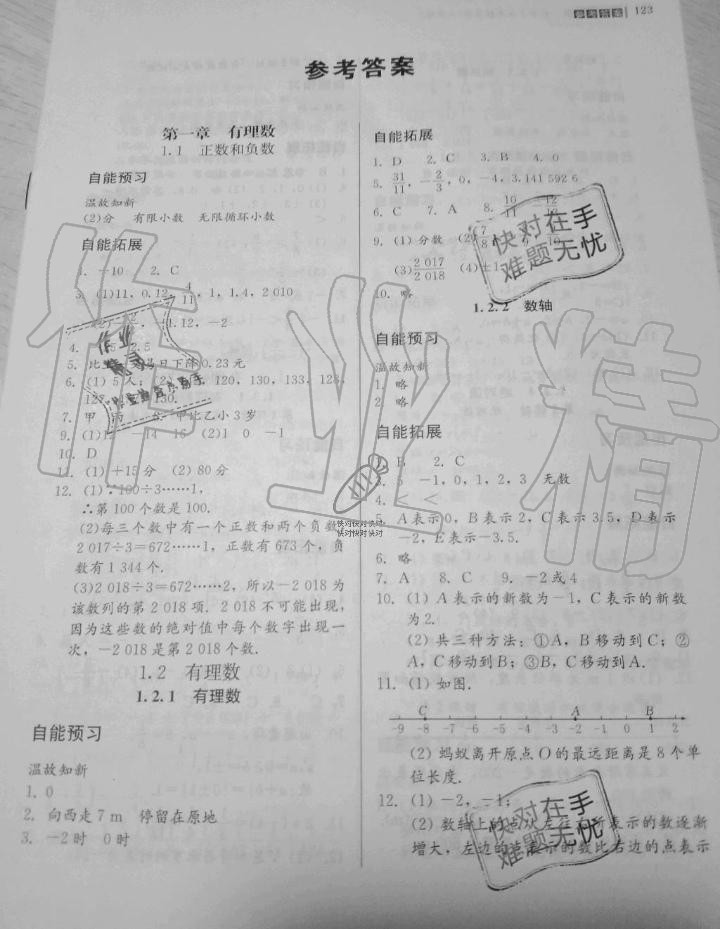 参考答案 123
参考答案
第一章 有理数
1.1 正数和负数
自能预习
温故知新
(2)分 有限小数 无限循环小数
自能拓展
1. -10 2. C
3. (1)11, 0.12, 4/11, 1, 1.4, 2 010
-1.12, -2
4. 2.5
5. 日下降0.23元
6. (1)5人; 120, 130, 133, 128,
127, 130.
7. 甲 丙 8. 甲比乙小3岁
9. (1)12 -14 16 (2)1 0 -1
10. D
11. (1)+15分 (2)80分
12. (1)∵100÷3……1,
∴第100个数是100.
(2)每三个数中有一个正数和两个负数
2 017÷3=672……1, 正数有673个, 负
数有1 344个.
(3)2 018÷3=672……2, 所以-2 018为
该数列的第2 018项. 2 018不可能出现,
因为这些数的绝对值中每个数字出现一
次, -2 018是第2 018个数.
1.2 有理数
1.2.1 有理数
自能预习
温故知新
1. 0
2. 向西走7 m 停留在原地
3. -2时 0时
自能拓展
1. D 2. C 3. B 4. 0
5. 31/11, -2/3, 0, -4, 3.141 592 6
6. C 7. A 8. 10/11 -12
9. (1)分数 (2)
(3)2 017/2 018 (4)±1
10. 略
1.2.2 数轴
自能预习
温故知新
1. 略
2. 略
自能拓展
1. B 2. C
3. 5 -1, 0, 1, 2, 3 无数
4. < <
5. A表示0, B表示2, C表示3.5, D表示
-2, E表示-3.5.
6. 略
7. A 8. C 9. -2或4
10. (1)A表示的新数为-1, C表示的新数
为2.
(2)共三种方法; ①A, B移动到C; ②
A, C移动到B; ③B, C移动到A.
11. (1)如图.
C A B
-9 -8 -7 -6 -5 -4 -3 -2 -1 0 1 2
(2)蚂蚁离开原点O的最远距离是8个单
位长度.
12. (1)-2, -1;
(2)数轴上的点从左往右所表示的数逐渐
增大, 左边的点表示的数比右边的点表示
作业精
快对在手
难题无忧
快对快对快对
快对快对快对
快对在手
难题无忧